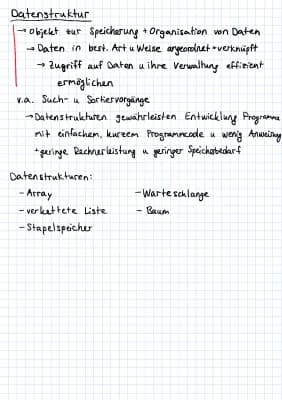 Datenstruktur
→ Objekt zur Speicherung + Organisation von Daten
→ Daten in best. Art u Weise angeordnet + verknüpft
→ Zugriff auf Daten u ihre Verwaltung effizient
ermöglichen
v.a. Such- u Sortiervorgänge
→ Datenstrukturen gewährleisten Entwicklung Programme
mit einfachem, kurzem Programmcode u wenig Anweisung
+ geringe Rechnerleistung u geringer Speicherbedarf
Datenstrukturen:
- Array - Warteschlange
- verkettete Liste - Baum
- Stapelspeicher